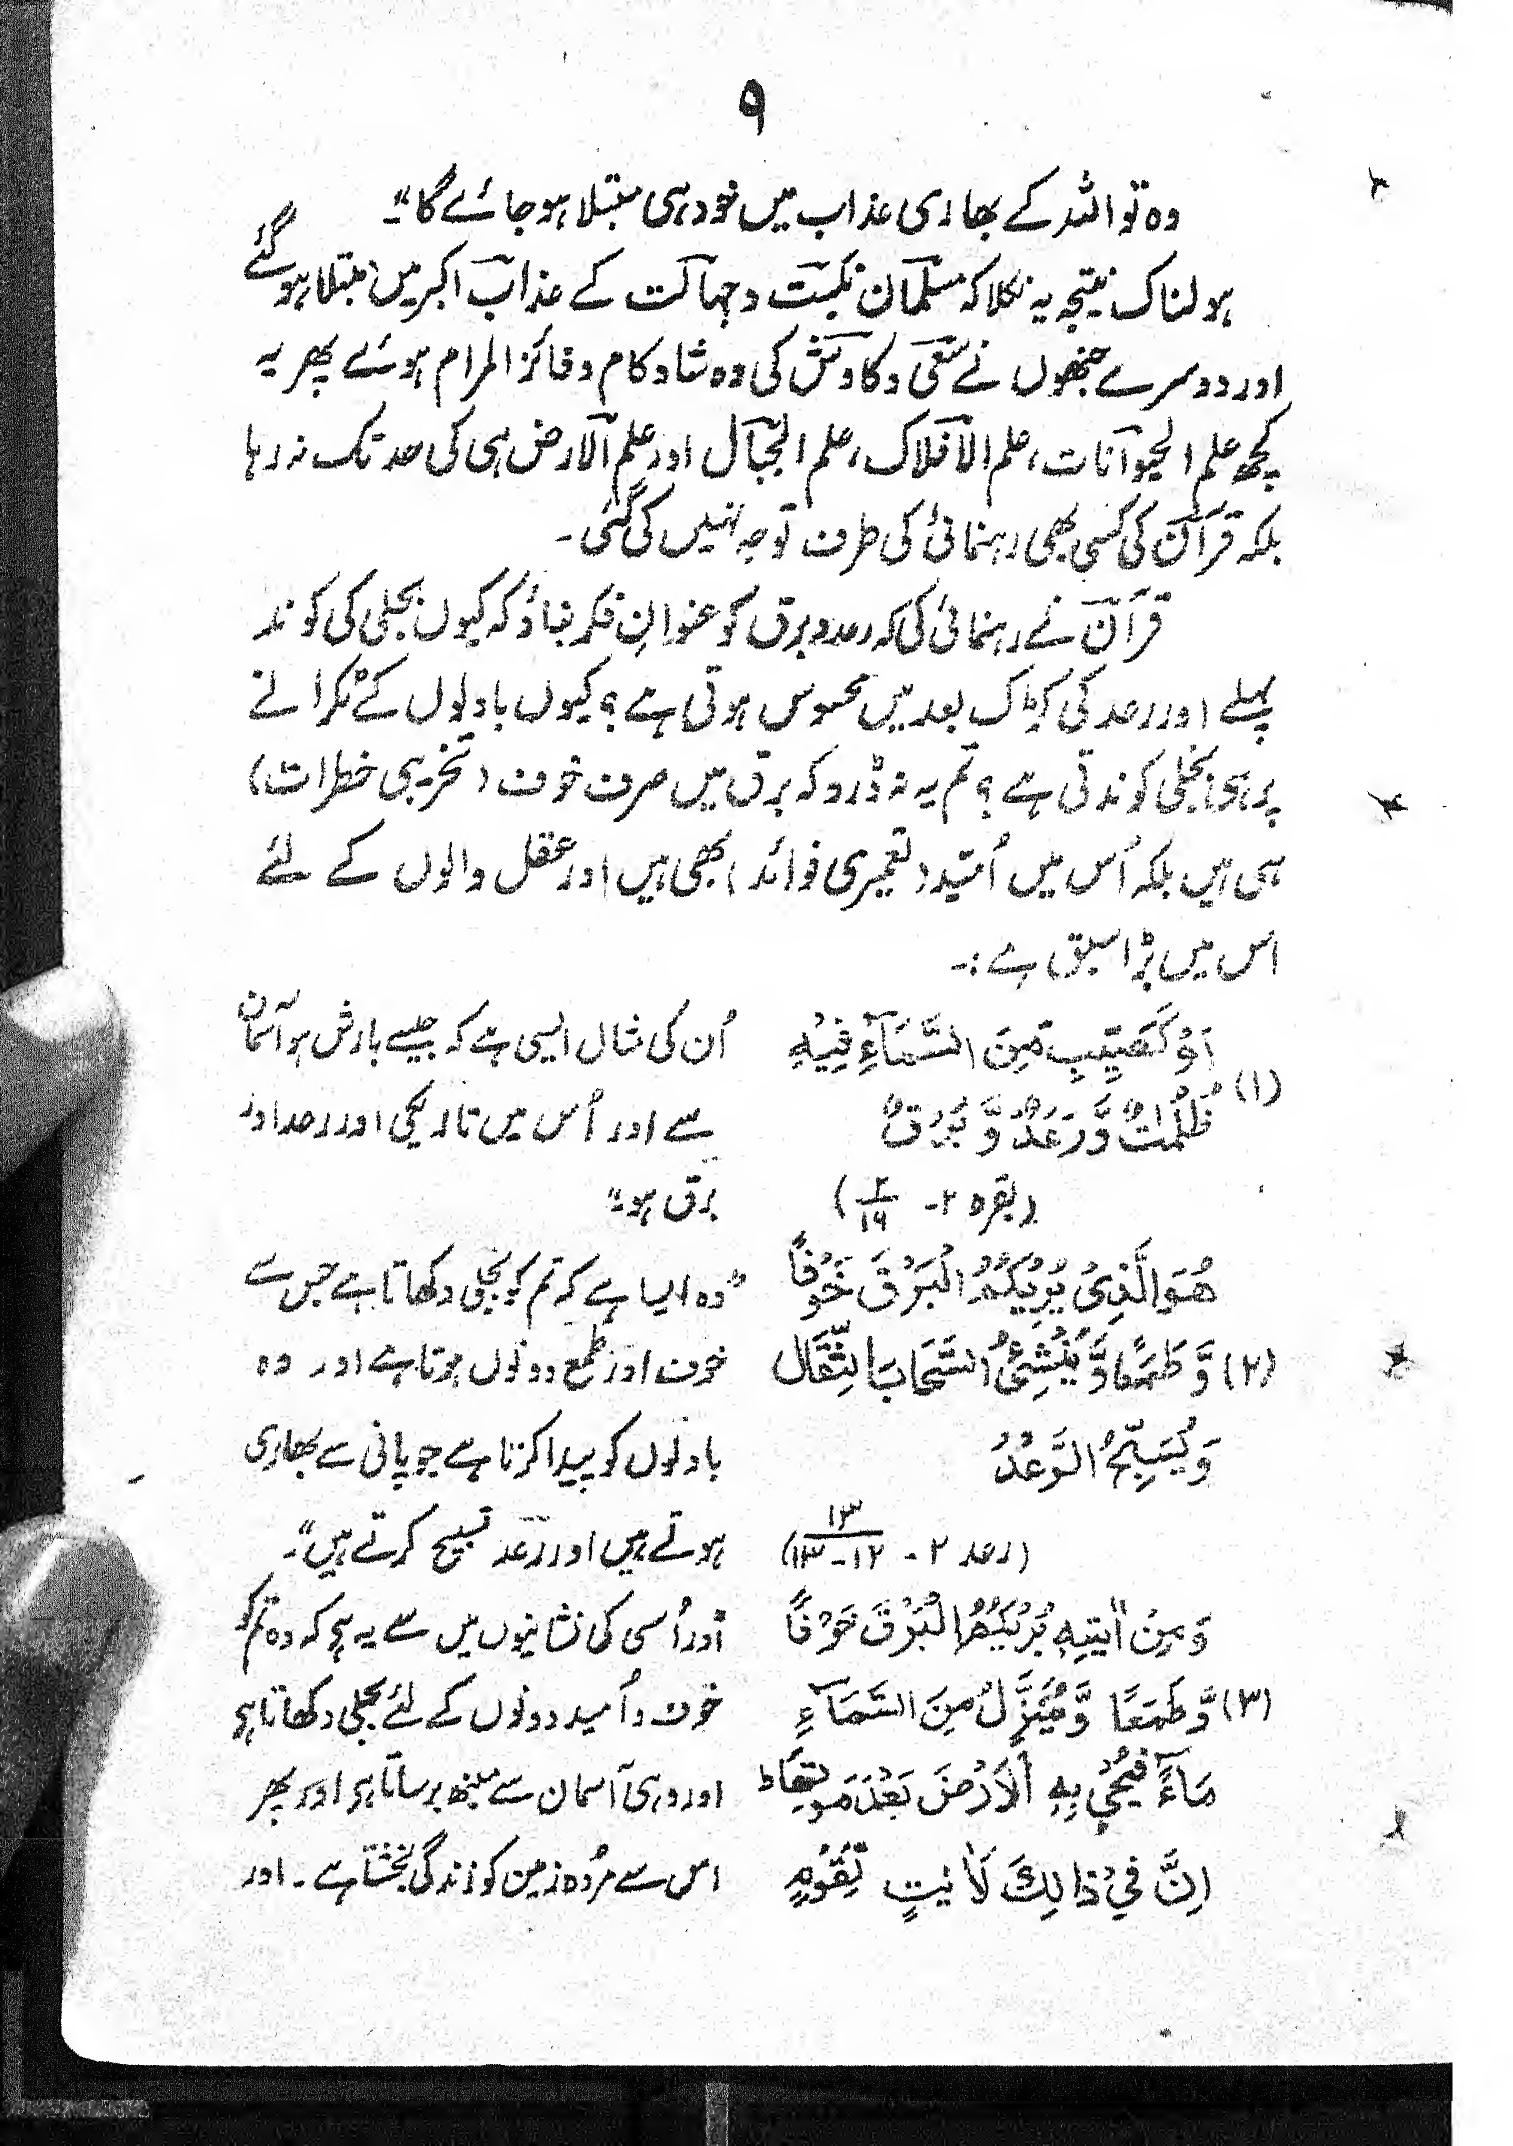 ۹
وہ تو اللہ کے بھاری عذاب میں خود ہی مبتلا ہو جائے گا"۔
ہولناک نتیجہ یہ نکلا کہ مسلمان نکبت و جہالت کے عذاب اکبر میں مبتلا ہو گئے
اور دوسرے جنھوں نے سعی و کاوش کی وہ شاد کام و فائز المرام ہوئے پھر یہ
کچھ علم الحیوانات، علم الافلاک، علم الجبال اور علم الارض ہی کی حد تک نہ رہا
بلکہ قرآن کی کسی بھی رہنمائی کی طرف توجہ نہیں کی گئی۔
قرآن نے رہنمائی کی کہ رعد و برق کو عنوانِ فکر بناؤ کہ کیوں بجلی کی کوند
پہلے اور رعد کی کڑک بعد میں محسوس ہوتی ہے؟ کیوں بادلوں کے ٹکرانے
پر ہی بجلی کوندتی ہے؟ تم یہ نہ ڈرو کہ برق میں صرف خوف (تخریبی خطرات)
ہی ہیں بلکہ اُس میں اُمید (تعمیری فوائد) بھی ہیں اور عقل والوں کے لئے
اس میں بڑا سبق ہے:۔
اَوْ كَصَيِّبٍ مِّنَ السَّمَآءِ فِيْهِ
(۱) ظُلُمٰتٌ وَّرَعْدٌ وَّ بَرْقٌ
(بقرہ ۲- ۲/۱۹)
اُن کی مثال ایسی ہے کہ جیسے بارش ہو آسمان
سے اور اُس میں تاریکی اور رعد اور
برق ہو"
هُوَ الَّذِیْ يُرِيْكُمُ الْبَرْقَ خَوْفًا
(۲) وَّ طَمَعًا وَّ يُنْشِئُ السَّحَابَ الثِّقَالَ
وَ يُسَبِّحُ الرَّعْدُ
(رعد ۲ - ۱۳/۱۲-۱۳)
"وہ ایسا ہے کہ تم کو بجلی دکھاتا ہے جس سے
خوف اور طمع دونوں ہوتا ہے اور وہ
بادلوں کو پیدا کرتا ہے جو پانی سے بھاری
ہوتے ہیں اور رعد تسبیح کرتے ہیں"۔
وَ مِنْ اٰيٰتِهٖ يُرِيْكُمُ الْبَرْقَ خَوْفًا
(۳) وَّ طَمَعًا وَّ يُنَزِّلُ مِنَ السَّمَآءِ
مَآءً فَيُحْیٖ بِهِ الْاَرْضَ بَعْدَ مَوْتِهَا ط
اِنَّ فِیْ ذَالِكَ لَاٰيٰتٍ لِّقَوْمٍ
"اور اُسی کی نشانیوں میں سے یہ ہے کہ وہ تم کو
خوف و اُمید دونوں کے لئے بجلی دکھاتا ہے
اور وہی آسمان سے مینھ برساتا ہے اور پھر
اس سے مُردہ زمین کو زندگی بخشتا ہے۔ اور